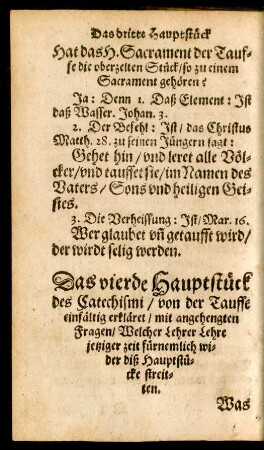 Das dritte Hauptstück
Hat das H. Sacrament der Tauf-
fe die oberzelten Stück/ so zu einem
Sacrament gehören?
Ja: Denn 1. Daß Element: Ist
daß Wasser. Johan. 3.
2. Der Befehl: Ist/ das Christus
Matth. 28. zu seinen Jüngern sagt:
Gehet hin/ vnd leret alle Völ-
cker/ vnd tauffet sie/ im Namen des
Vaters/ Sons vnd heiligen Gei-
stes.
3. Die Verheissung: Ist/ Mar. 16.
Wer glaubet vñ getaufft wird/
der wirdt selig werden.
Das vierde Hauptstück
des Catechismi/ von der Tauffe
einfältig erkläret/ mit angehengten
Fragen/ Welcher Lehrer Lehre
jetziger zeit fürnemlich wi-
der diß Hauptstü-
cke streit-
ten.
Was